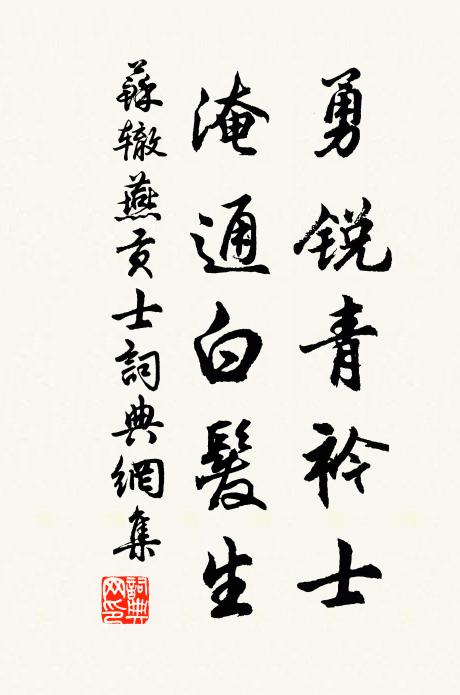 勇锐青衿士
淹通白髮生
蘇辙燕贡士詞典網集
詞典网印